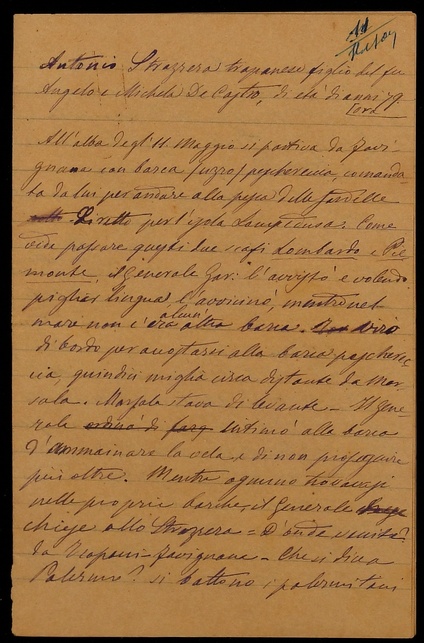 11
Antonio Strazzera trapanese figlio del fu
Angelo e Michela De Castro, di età di anni 79
Ora
All'alba degl'11 Maggio si partiva da Favi
gnana con barca peschereccia, comanda
ta da lui per andare alla pesca delle sardelle
diretti per l'isola Lampedusa. Come
vide passare questi due scafi Lombardo e Pie
monte, il generale Gar: l'avvistò e volendo
pigliar lingua l'avvicinò, mentre nel
mare non c'era alcun' altra barca. Virò
di bordo per accostarsi alla barca pescherec
cia, quindici miglia circa distante da Mar
sala. Marsala stava di levante. Il gene
rale ordinò di intimò alla barca
d'ammainare la vela e di non proseguire
più oltre. Mentre ognuno
nelle proprie barche, il Generale
chiese allo Strazzera = D'onde venite?
da Trapani = Favignana = Che si dice a
Palermo? si battono i palermitani